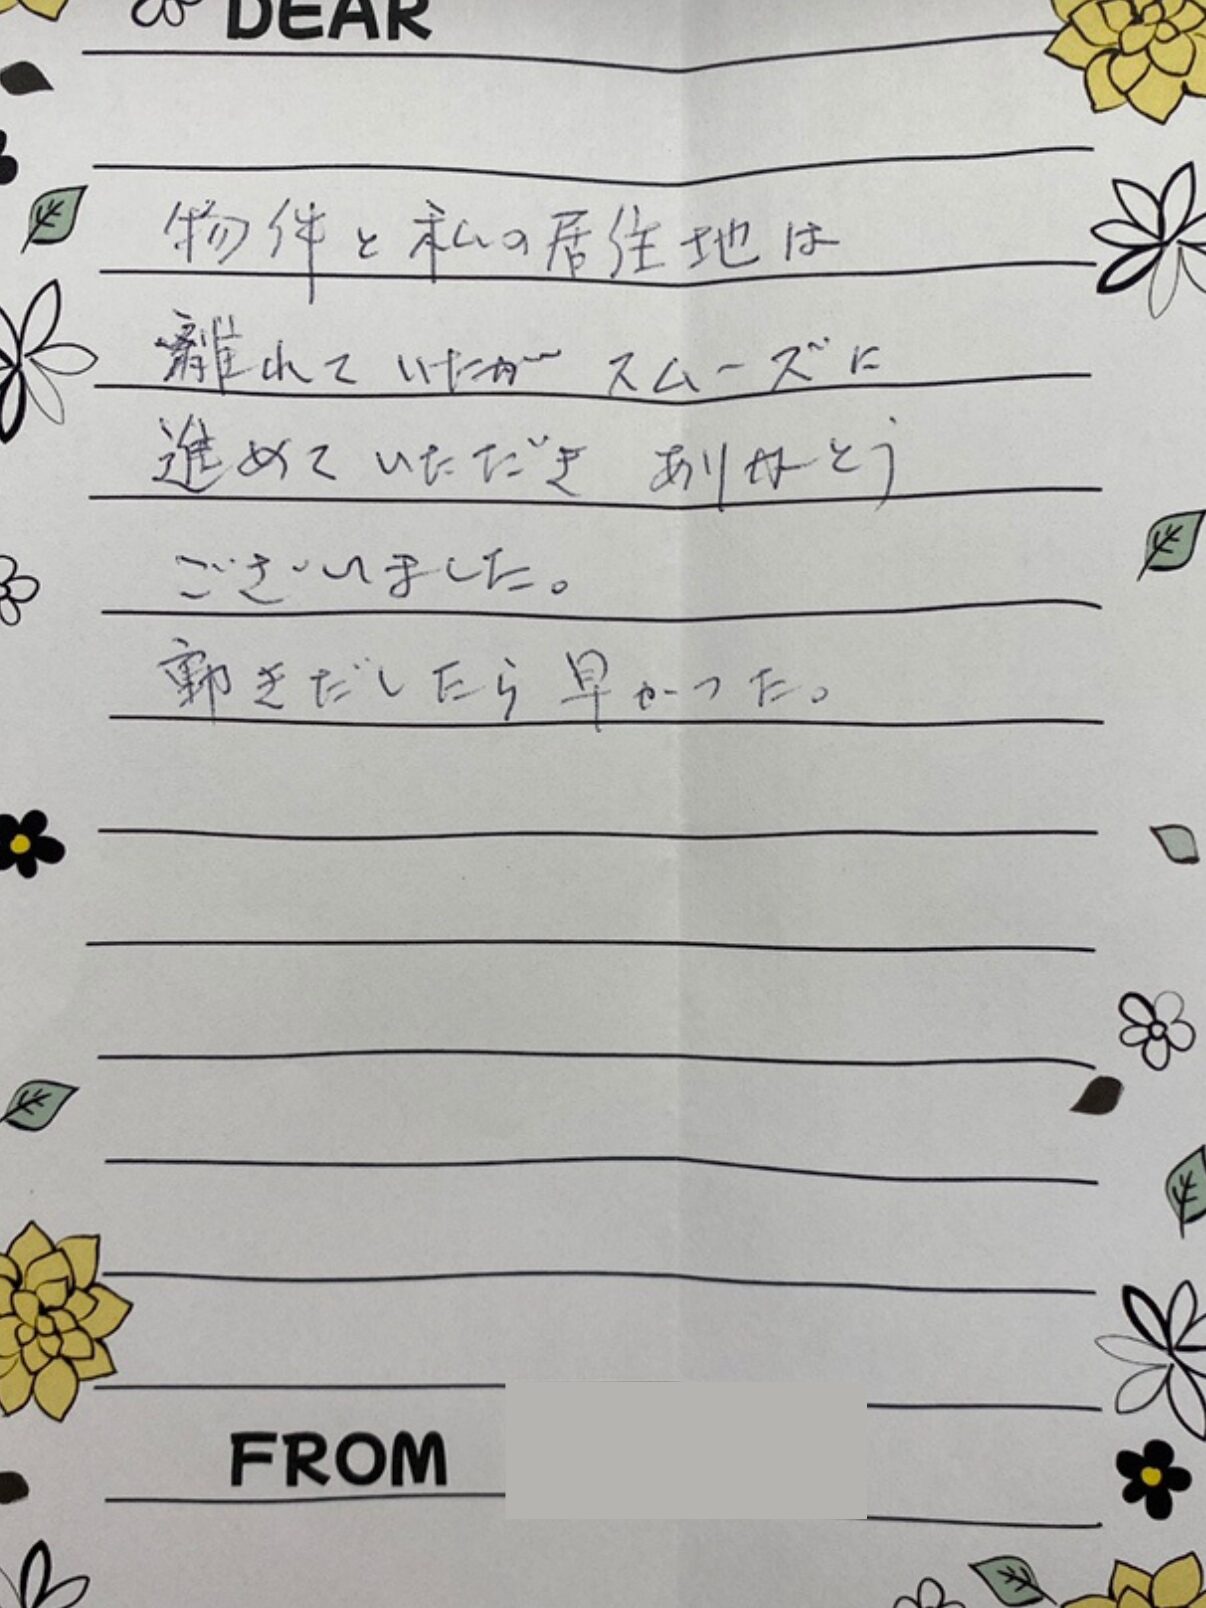 DEAR
物件と私の居住地は
離れていたが スムーズに
進めていただき ありがとう
ございました。
動きだしたら早かった。
FROM